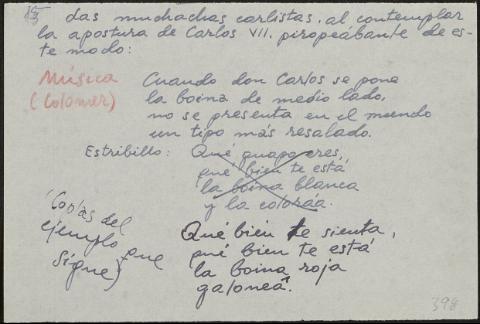 15
Las muchachas carlistas, al contemplar
la apostura de Carlos VII, piropeábante de es-
te modo:
Música
(Colomer)
Cuando don Carlos se pone
la boina de medio lado,
no se presenta en el mundo
un tipo más resalado.
Estribillo: Qué guapo eres,
qué bien te está
la boina blanca
y la coloráa.
(Copias del
ejemplo que
sigue)
Qué bien te sienta,
qué bien te está
la boina roja
galoneá.
398